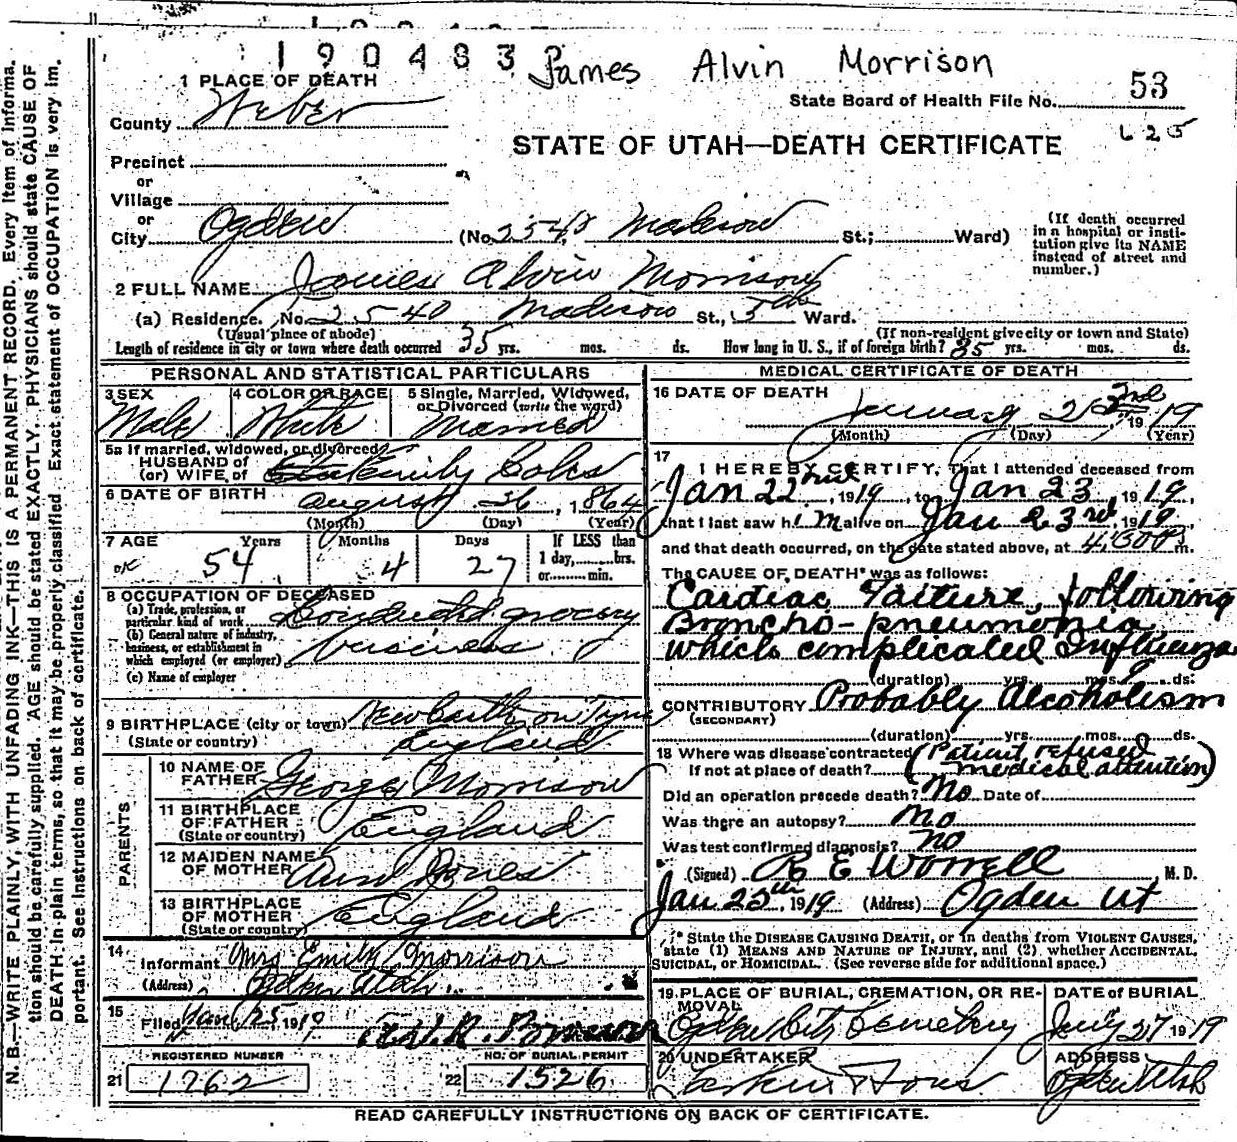 190483 James Alvin Morrison
53
1 PLACE OF DEATH
State Board of Health File No.
County Weber
625
STATE OF UTAH—DEATH CERTIFICATE
Precinct
or
Village
or
City Ogden (No. 2540 Madison St.; Ward)
(If death occurred
in a hospital or insti-
tution give its NAME
instead of street and
number.)
2 FULL NAME James Alvin Morrison
(a) Residence. No. 2540 Madison St., 5th Ward.
(Usual place of abode) (If non-resident give city or town and State)
Length of residence in city or town where death occurred 35 yrs. mos. ds. How long in U. S., if of foreign birth? 35 yrs. mos. ds.
PERSONAL AND STATISTICAL PARTICULARS
3 SEX
Male
4 COLOR OR RACE
White
5 Single, Married, Widowed,
or Divorced (write the word)
Married
5a If married, widowed, or divorced
HUSBAND of
(or) WIFE of Emily Coles
6 DATE OF BIRTH August 26, 1864
(Month) (Day) (Year)
7 AGE Years Months Days If LESS than
1 day, hrs.
or min.
OK 54 4 27
8 OCCUPATION OF DECEASED
(a) Trade, profession, or
particular kind of work Conducted grocery
(b) General nature of industry,
business, or establishment in
which employed (or employer) business
(c) Name of employer
9 BIRTHPLACE (city or town) Newcastle on Tyne
(State or country) England
PARENTS
10 NAME OF
FATHER George Morrison
11 BIRTHPLACE
OF FATHER England
(State or country)
12 MAIDEN NAME
OF MOTHER Ann Jones
13 BIRTHPLACE
OF MOTHER England
(State or country)
14
Informant Mrs Emily Morrison
(Address) Ogden Utah.
15
Filed Jan 25 1919
REGISTERED NUMBER
21 1762
NO. OF BURIAL PERMIT
22 1526
MEDICAL CERTIFICATE OF DEATH
16 DATE OF DEATH
January 23rd 1919
(Month) (Day) (Year)
17
I HEREBY CERTIFY, That I attended deceased from
Jan 22nd, 1919, to Jan 23, 1919,
that I last saw him alive on Jan 23rd, 1919,
and that death occurred, on the date stated above, at 4:30 P m.
The CAUSE OF DEATH* was as follows:
Cardiac Failure, following
Broncho-pneumonia
which complicated Influenza
(duration) yrs. mos. ds.
CONTRIBUTORY Probably Alcoholism
(SECONDARY)
(duration) yrs. mos. ds.
18 Where was disease contracted (Patient refused
If not at place of death? medical attention)
Did an operation precede death? No Date of
Was there an autopsy? No
Was test confirmed diagnosis? No
(Signed) R E Worrell M. D.
Jan 25th, 1919 (Address) Ogden Ut
* State the DISEASE CAUSING DEATH, or in deaths from VIOLENT CAUSES,
state (1) MEANS AND NATURE OF INJURY, and (2) whether ACCIDENTAL,
SUICIDAL, or HOMICIDAL. (See reverse side for additional space.)
19 PLACE OF BURIAL, CREMATION, OR RE-
MOVAL
Ogden City Cemetery
DATE of BURIAL
Jany 27 1919
20 UNDERTAKER
Larkin & Sons
ADDRESS
Ogden Utah
READ CAREFULLY INSTRUCTIONS ON BACK OF CERTIFICATE.
N. B.—WRITE PLAINLY, WITH UNFADING INK—THIS IS A PERMANENT RECORD. Every item of informa-
tion should be carefully supplied. AGE should be stated EXACTLY. PHYSICIANS should state CAUSE OF
DEATH in plain terms, so that it may be properly classified. Exact statement of OCCUPATION is very im-
portant. See instructions on back of certificate.